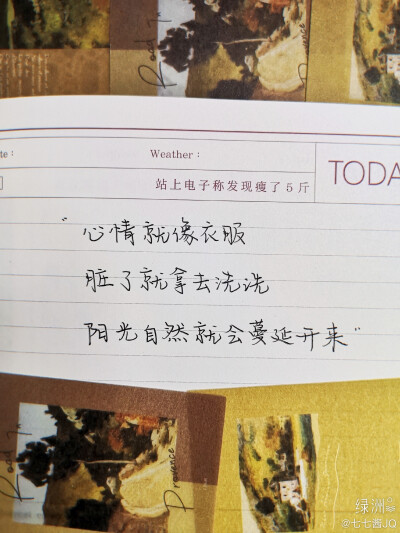 Road In
Provence
te：
Weather：
TODA
站上电子称发现瘦了5斤
“心情就像衣服
脏了就拿去洗洗
阳光自然就会蔓延开来”
Road In
Provence
绿洲
@七七酱JO